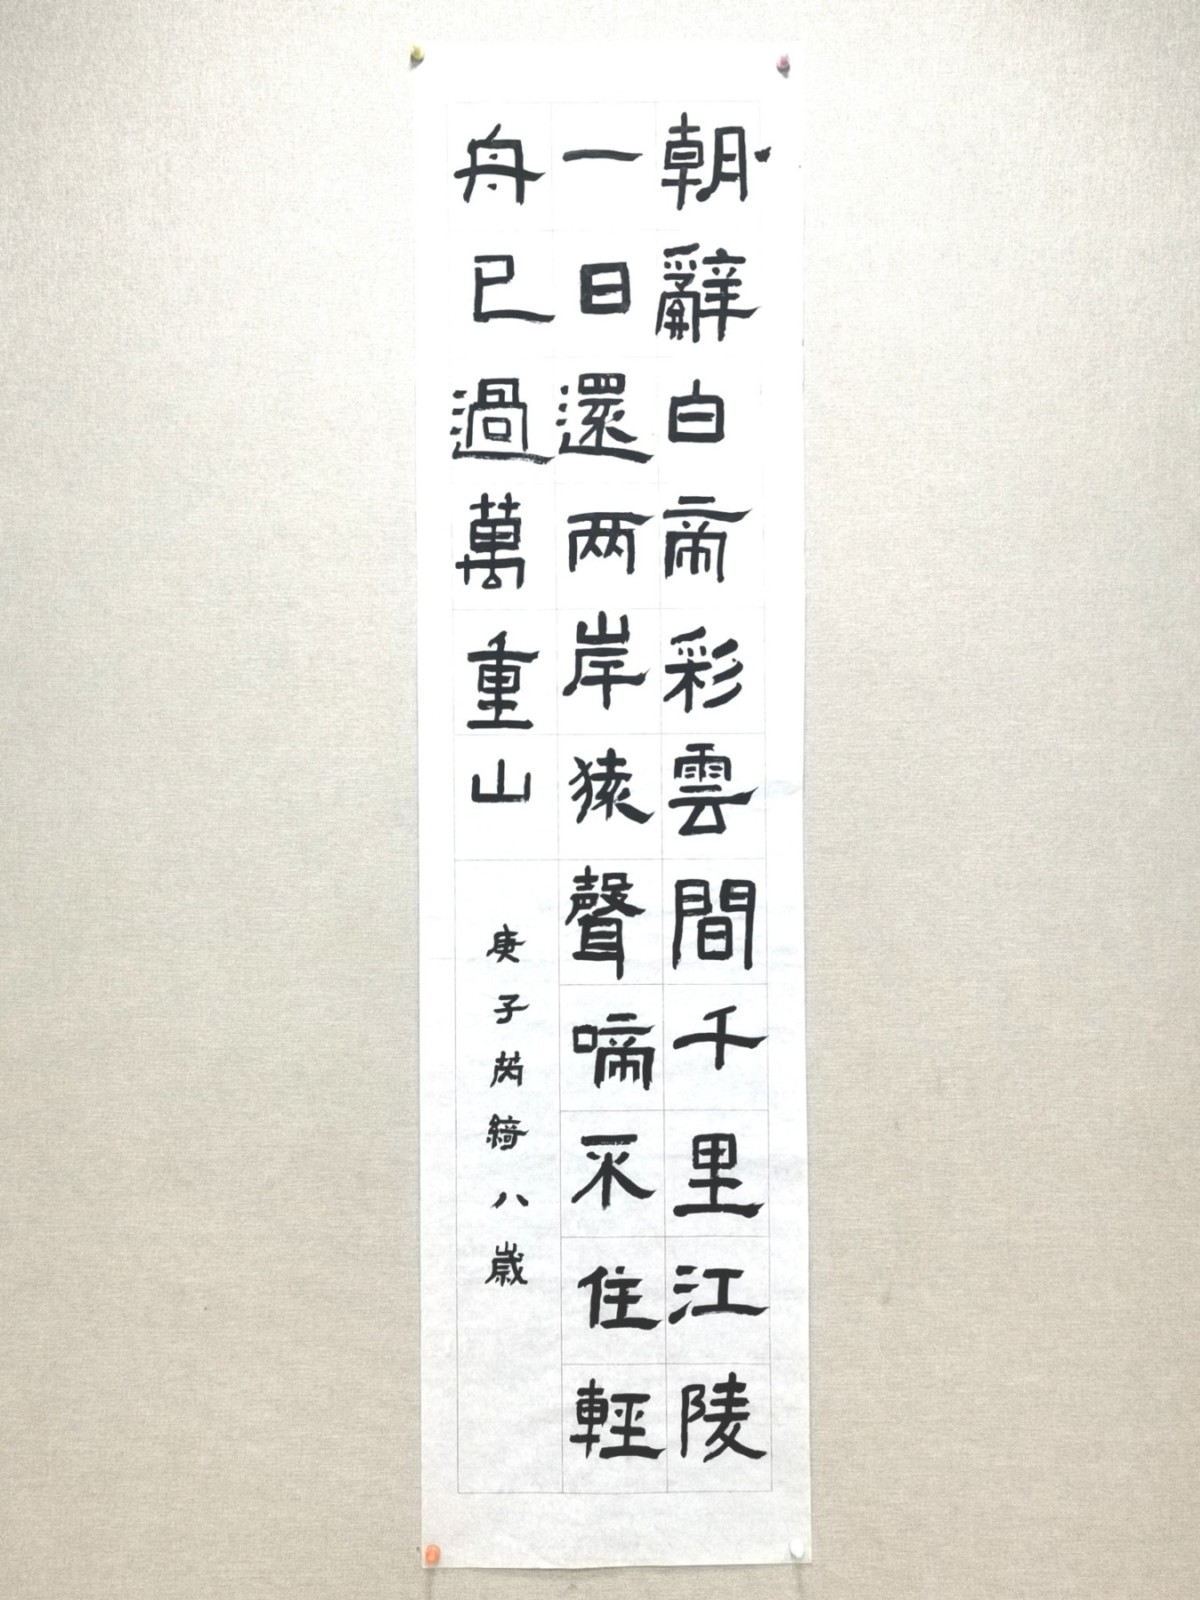 朝辭白帝彩雲間千里江陵
一日還两岸猿聲啼不住輕
舟已過萬重山
庚子芮綺八歲